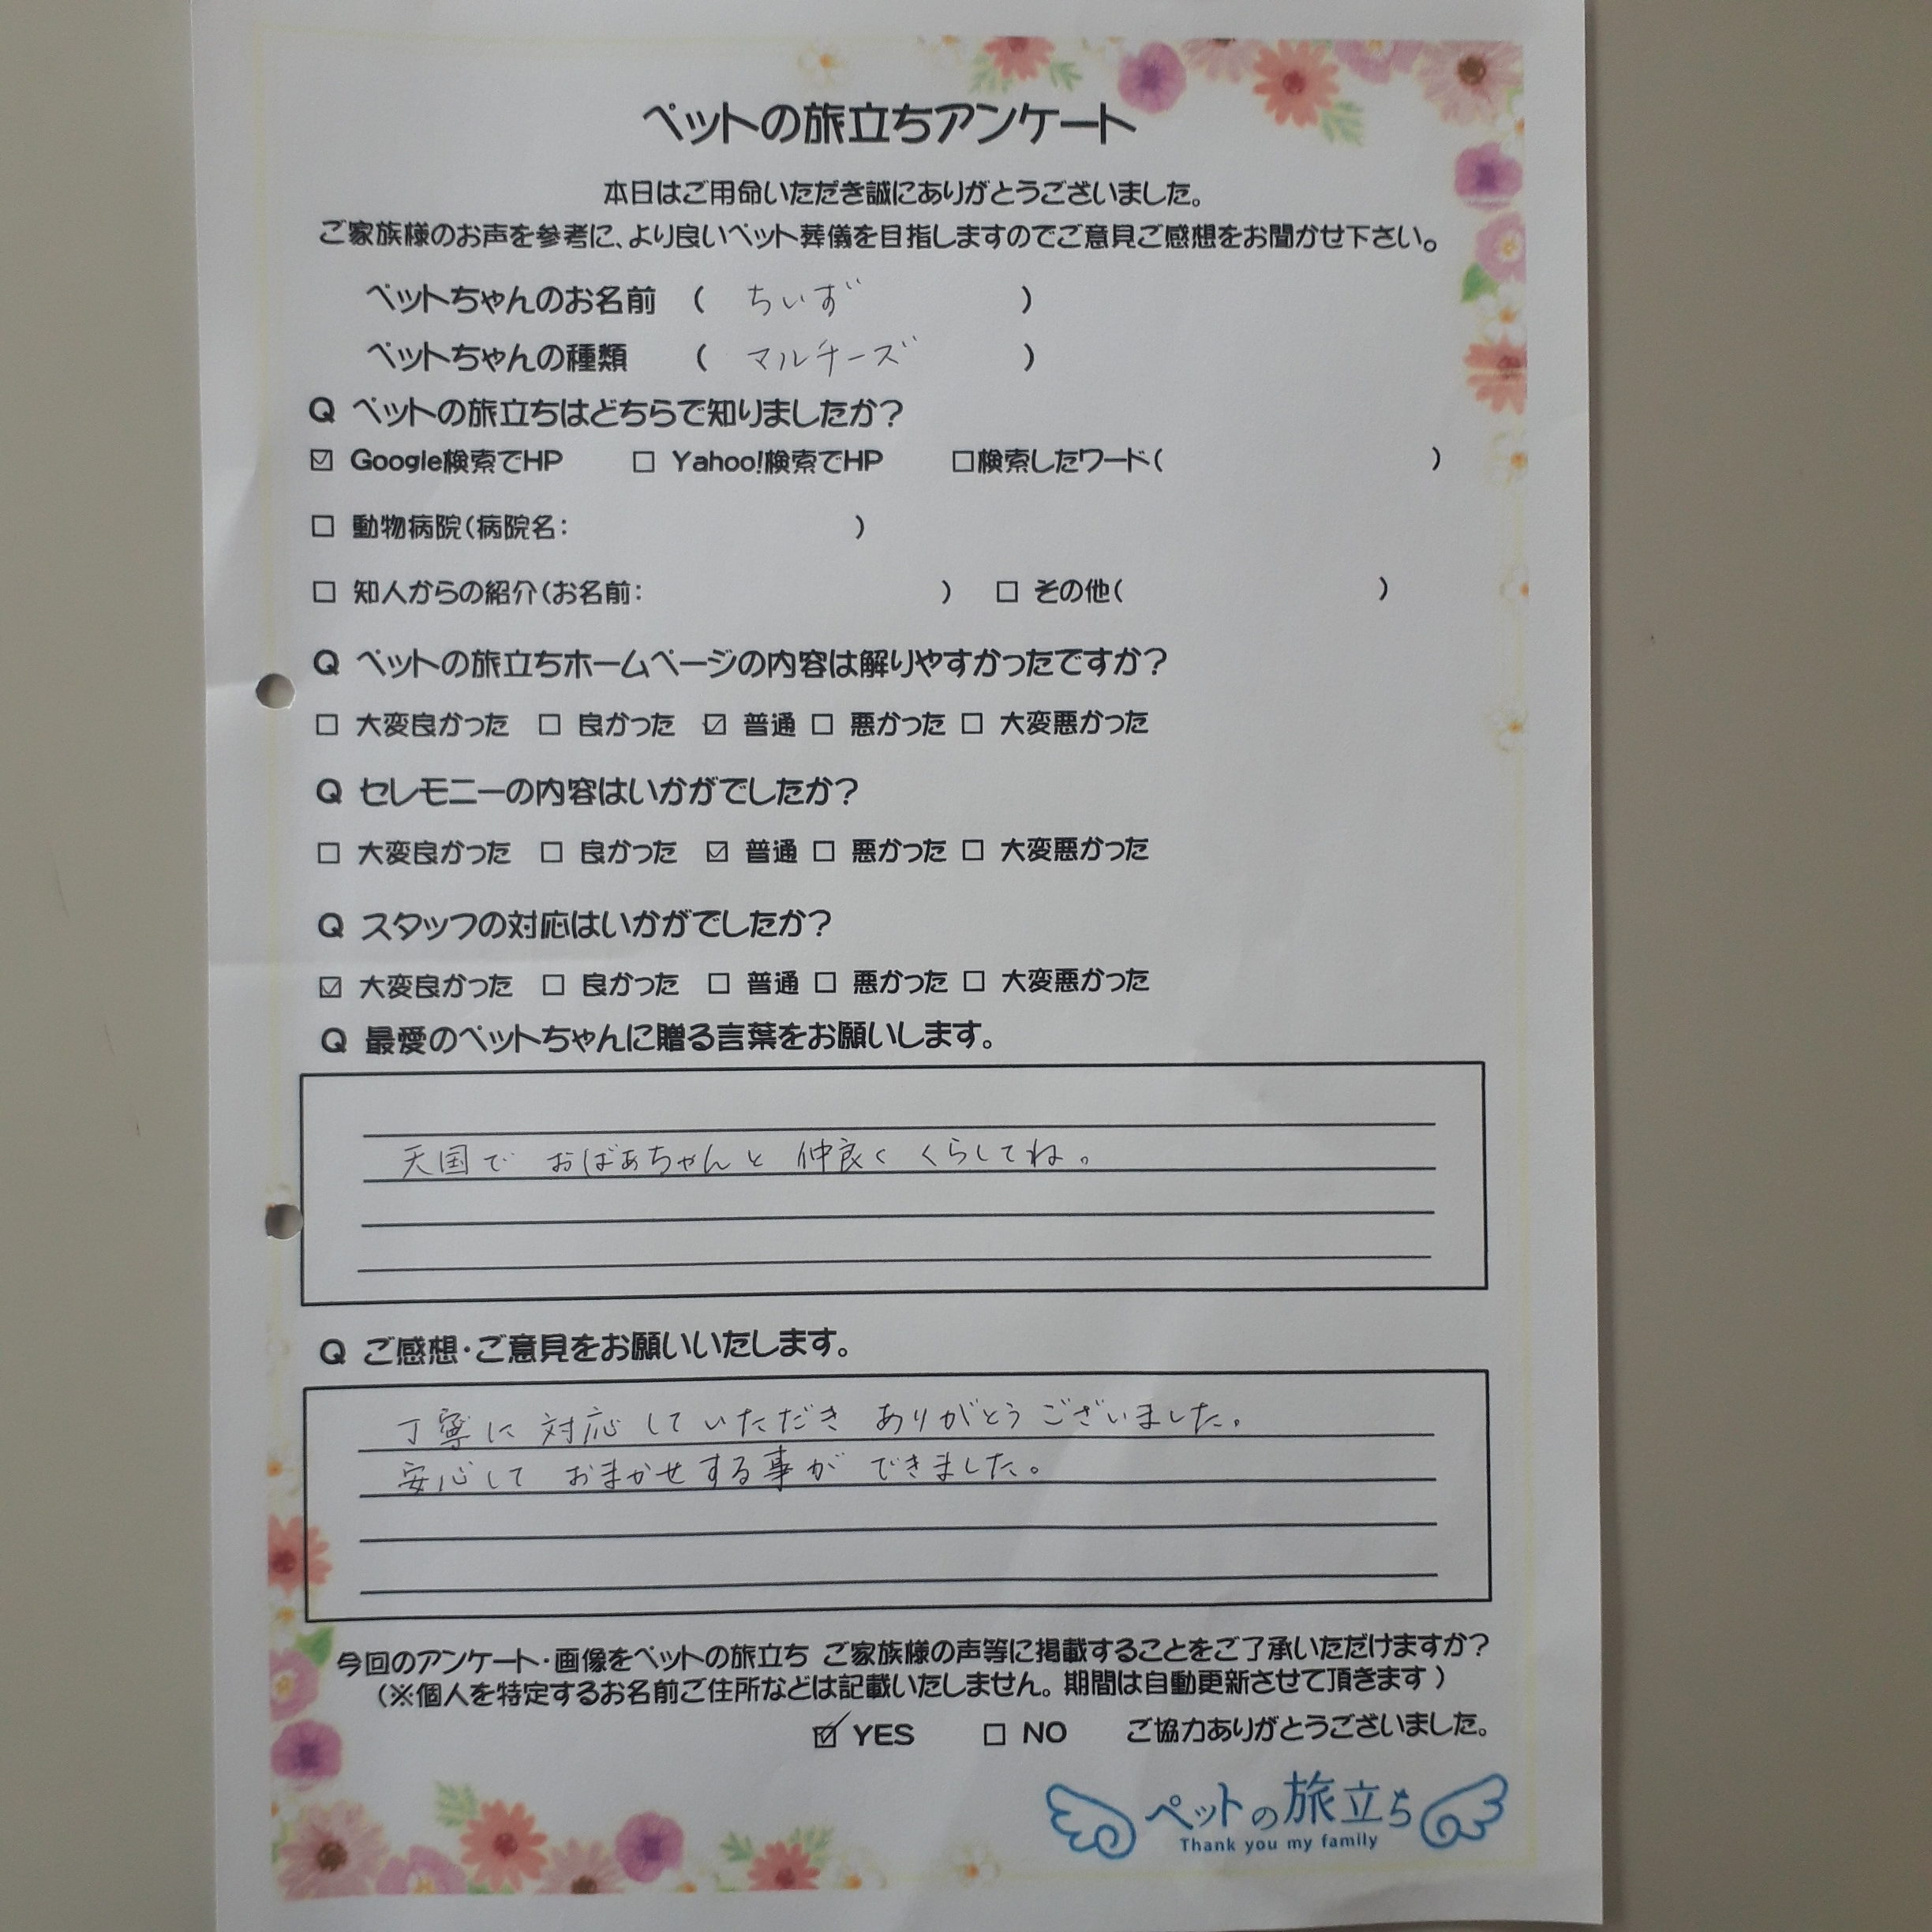 ペットの旅立ちアンケート
本日はご用命いただき誠にありがとうございました。
ご家族様のお声を参考に、より良いペット葬儀を目指しますのでご意見ご感想をお聞かせ下さい。
ペットちゃんのお名前 ( ちいず )
ペットちゃんの種類 ( マルチーズ )
Q ペットの旅立ちはどちらで知りましたか?
☑ Google検索でHP □ Yahoo!検索でHP □検索したワード( )
□ 動物病院(病院名: )
□ 知人からの紹介(お名前: ) □ その他( )
Q ペットの旅立ちホームページの内容は解りやすかったですか?
□ 大変良かった □ 良かった ☑ 普通 □ 悪かった □ 大変悪かった
Q セレモニーの内容はいかがでしたか?
□ 大変良かった □ 良かった ☑ 普通 □ 悪かった □ 大変悪かった
Q スタッフの対応はいかがでしたか?
☑ 大変良かった □ 良かった □ 普通 □ 悪かった □ 大変悪かった
Q 最愛のペットちゃんに贈る言葉をお願いします。
天国で おばあちゃんと 仲良く くらしてね。
Q ご感想・ご意見をお願いいたします。
丁寧に 対応 していただき ありがとう ございました。
安心して おまかせする事が できました。
今回のアンケート・画像をペットの旅立ち ご家族様の声等に掲載することをご了承いただけますか?
(※個人を特定するお名前ご住所などは記載いたしません。期間は自動更新させて頂きます)
☑ YES □ NO ご協力ありがとうございました。
ペットの旅立ち
Thank you my family